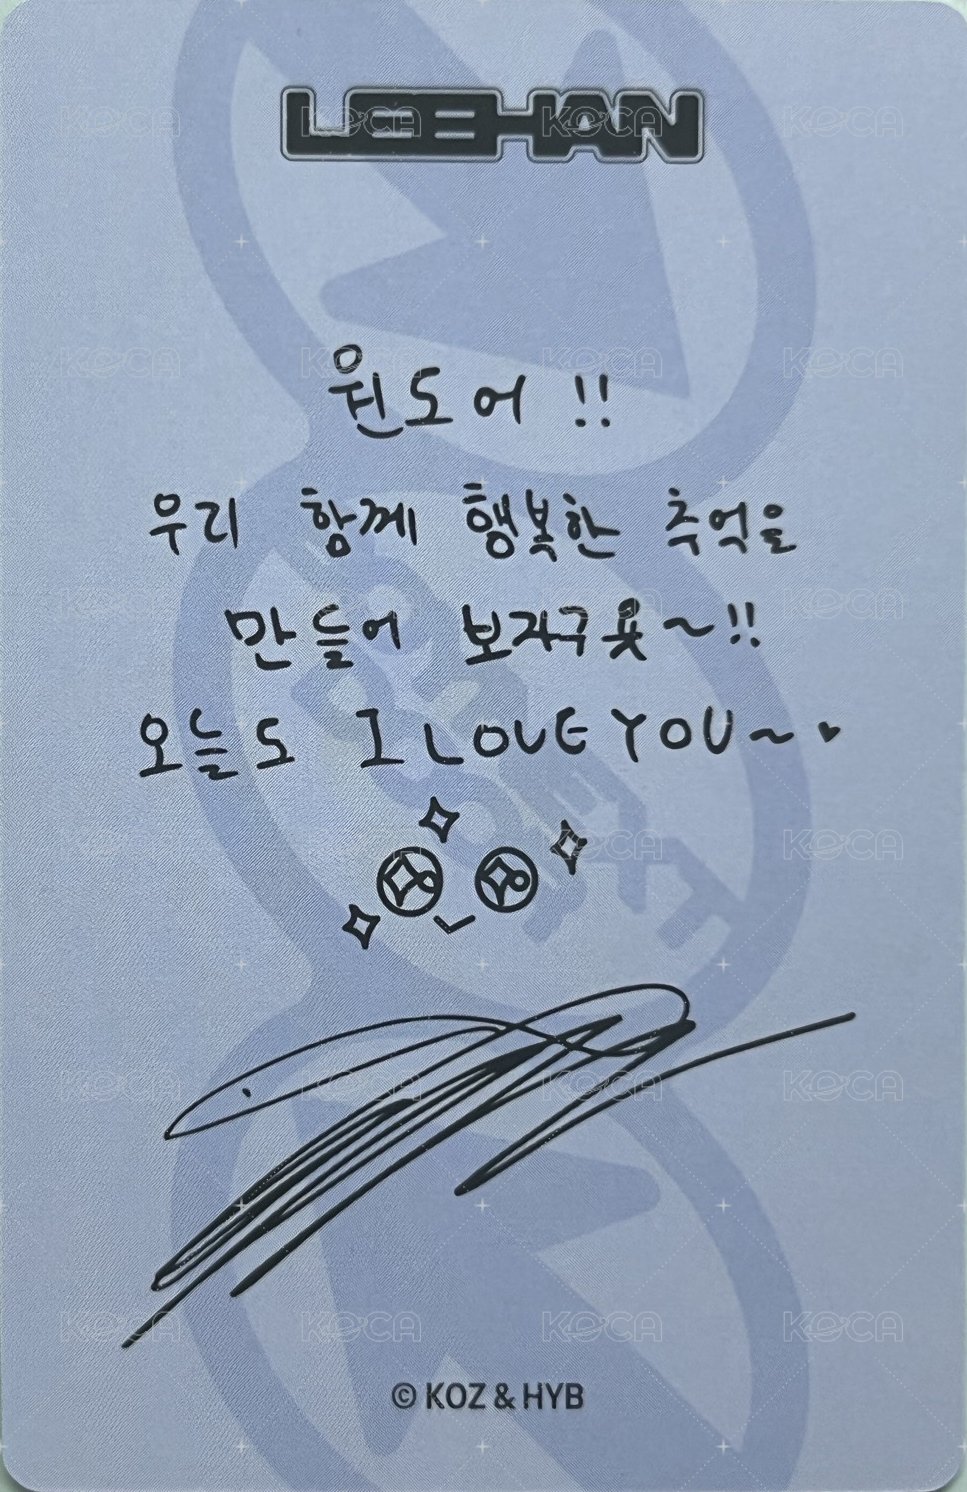 LEEHAN
원도어 !!
우리 함께 행복한 추억을
만들어 보자구욧~!!
오늘도 I LOVE YOU~♥
© KOZ & HYB
KOCA